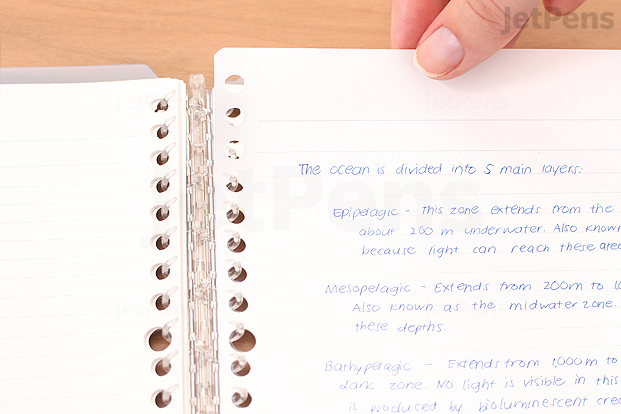 JetPens
The ocean is divided into 5 main layers:
Epipelagic - This zone extends from the
about 200 m underwater. Also known
because light can reach these area
Mesopelagic - Extends from 200m to
Also known as the midwater zone.
these depths.
Bathypelagic - Extends from 1,000m to
dark zone. No light is visible in this
is produced by bioluminescent crea